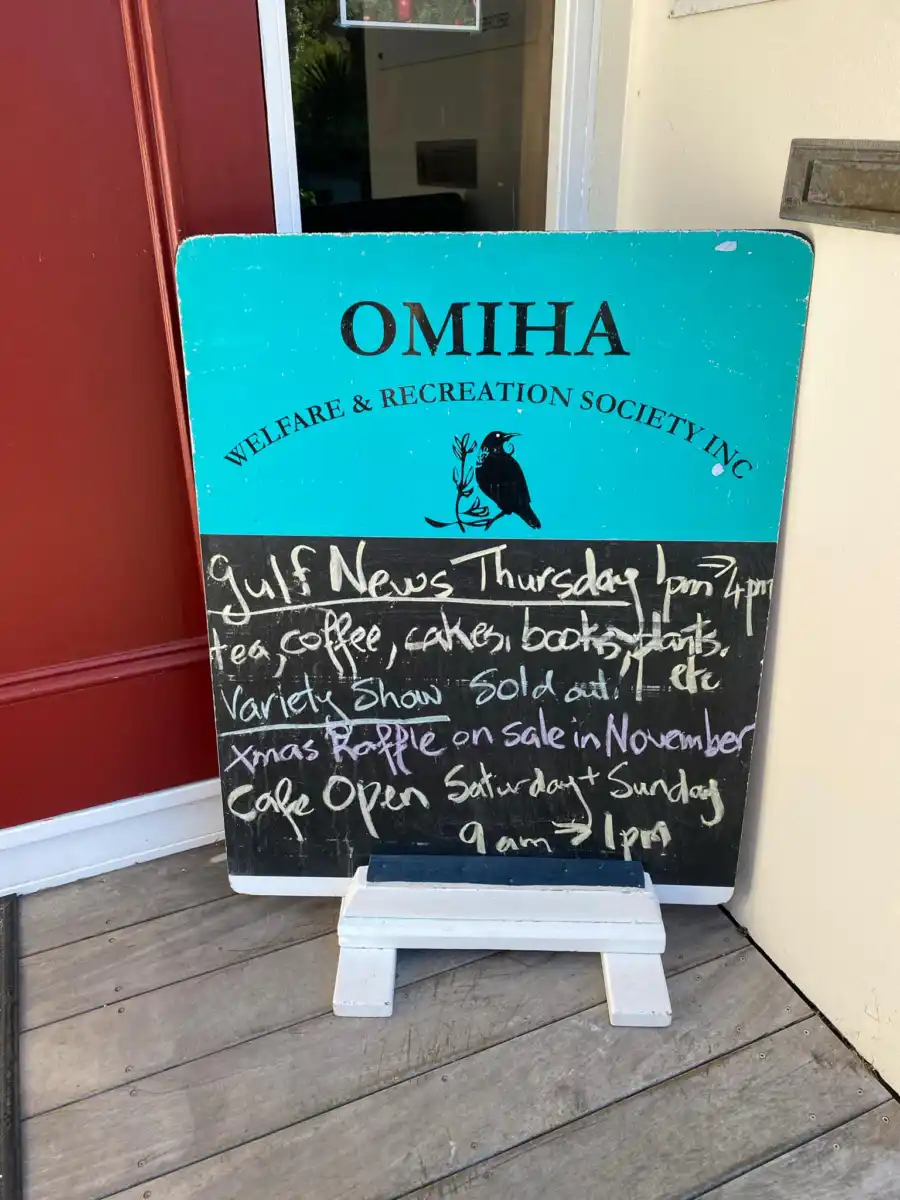 OMIHA
WELFARE & RECREATION SOCIETY INC
Gulf News Thursday 1pm → 4pm
tea, coffee, cakes, books, plants,
etc
Variety Show Sold out!
Xmas Raffle on sale in November
Cafe Open Saturday + Sunday
9am → 1pm